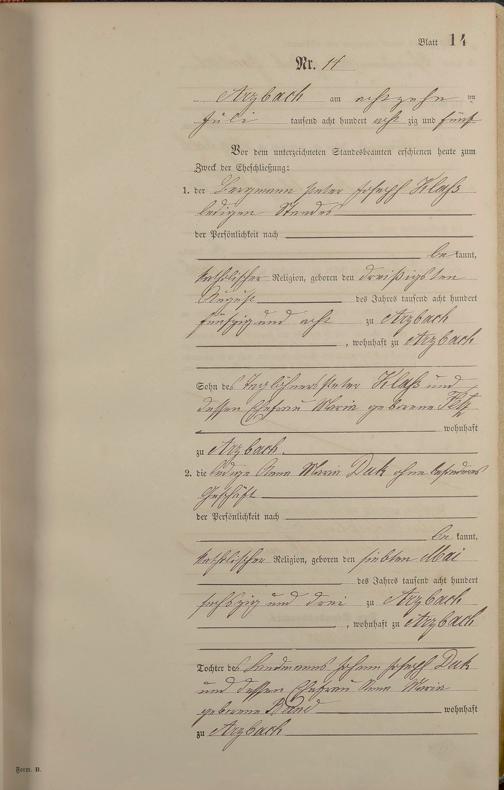 Blatt 14
Nr. 14
Arzbach am achtzehn ten
Juli tausend acht hundert acht zig und fünf
Vor dem unterzeichneten Standesbeamten erschienen heute zum
Zweck der Eheschließung:
1. der Bergmann Peter Joseph Klaß
ledigen Standes
der Persönlichkeit nach
be kannt,
katholischer Religion, geboren den dreißigsten
August des Jahres tausend acht hundert
fünfzig und acht zu Arzbach
, wohnhaft zu Arzbach
Sohn des Taglöhners Peter Klaß und
dessen Ehefrau Maria geborene
wohnhaft
zu Arzbach.
2. die ledige Anna Maria Duk ohne besonderes
Geschäft
der Persönlichkeit nach
be kannt,
katholischer Religion, geboren den siebten Mai
des Jahres tausend acht hundert
sechszig und drei zu Arzbach
, wohnhaft zu Arzbach
Tochter des Landmanns Johann Joseph Duk
und dessen Ehefrau Anna Maria
geborene
wohnhaft
zu Arzbach
Form. B.